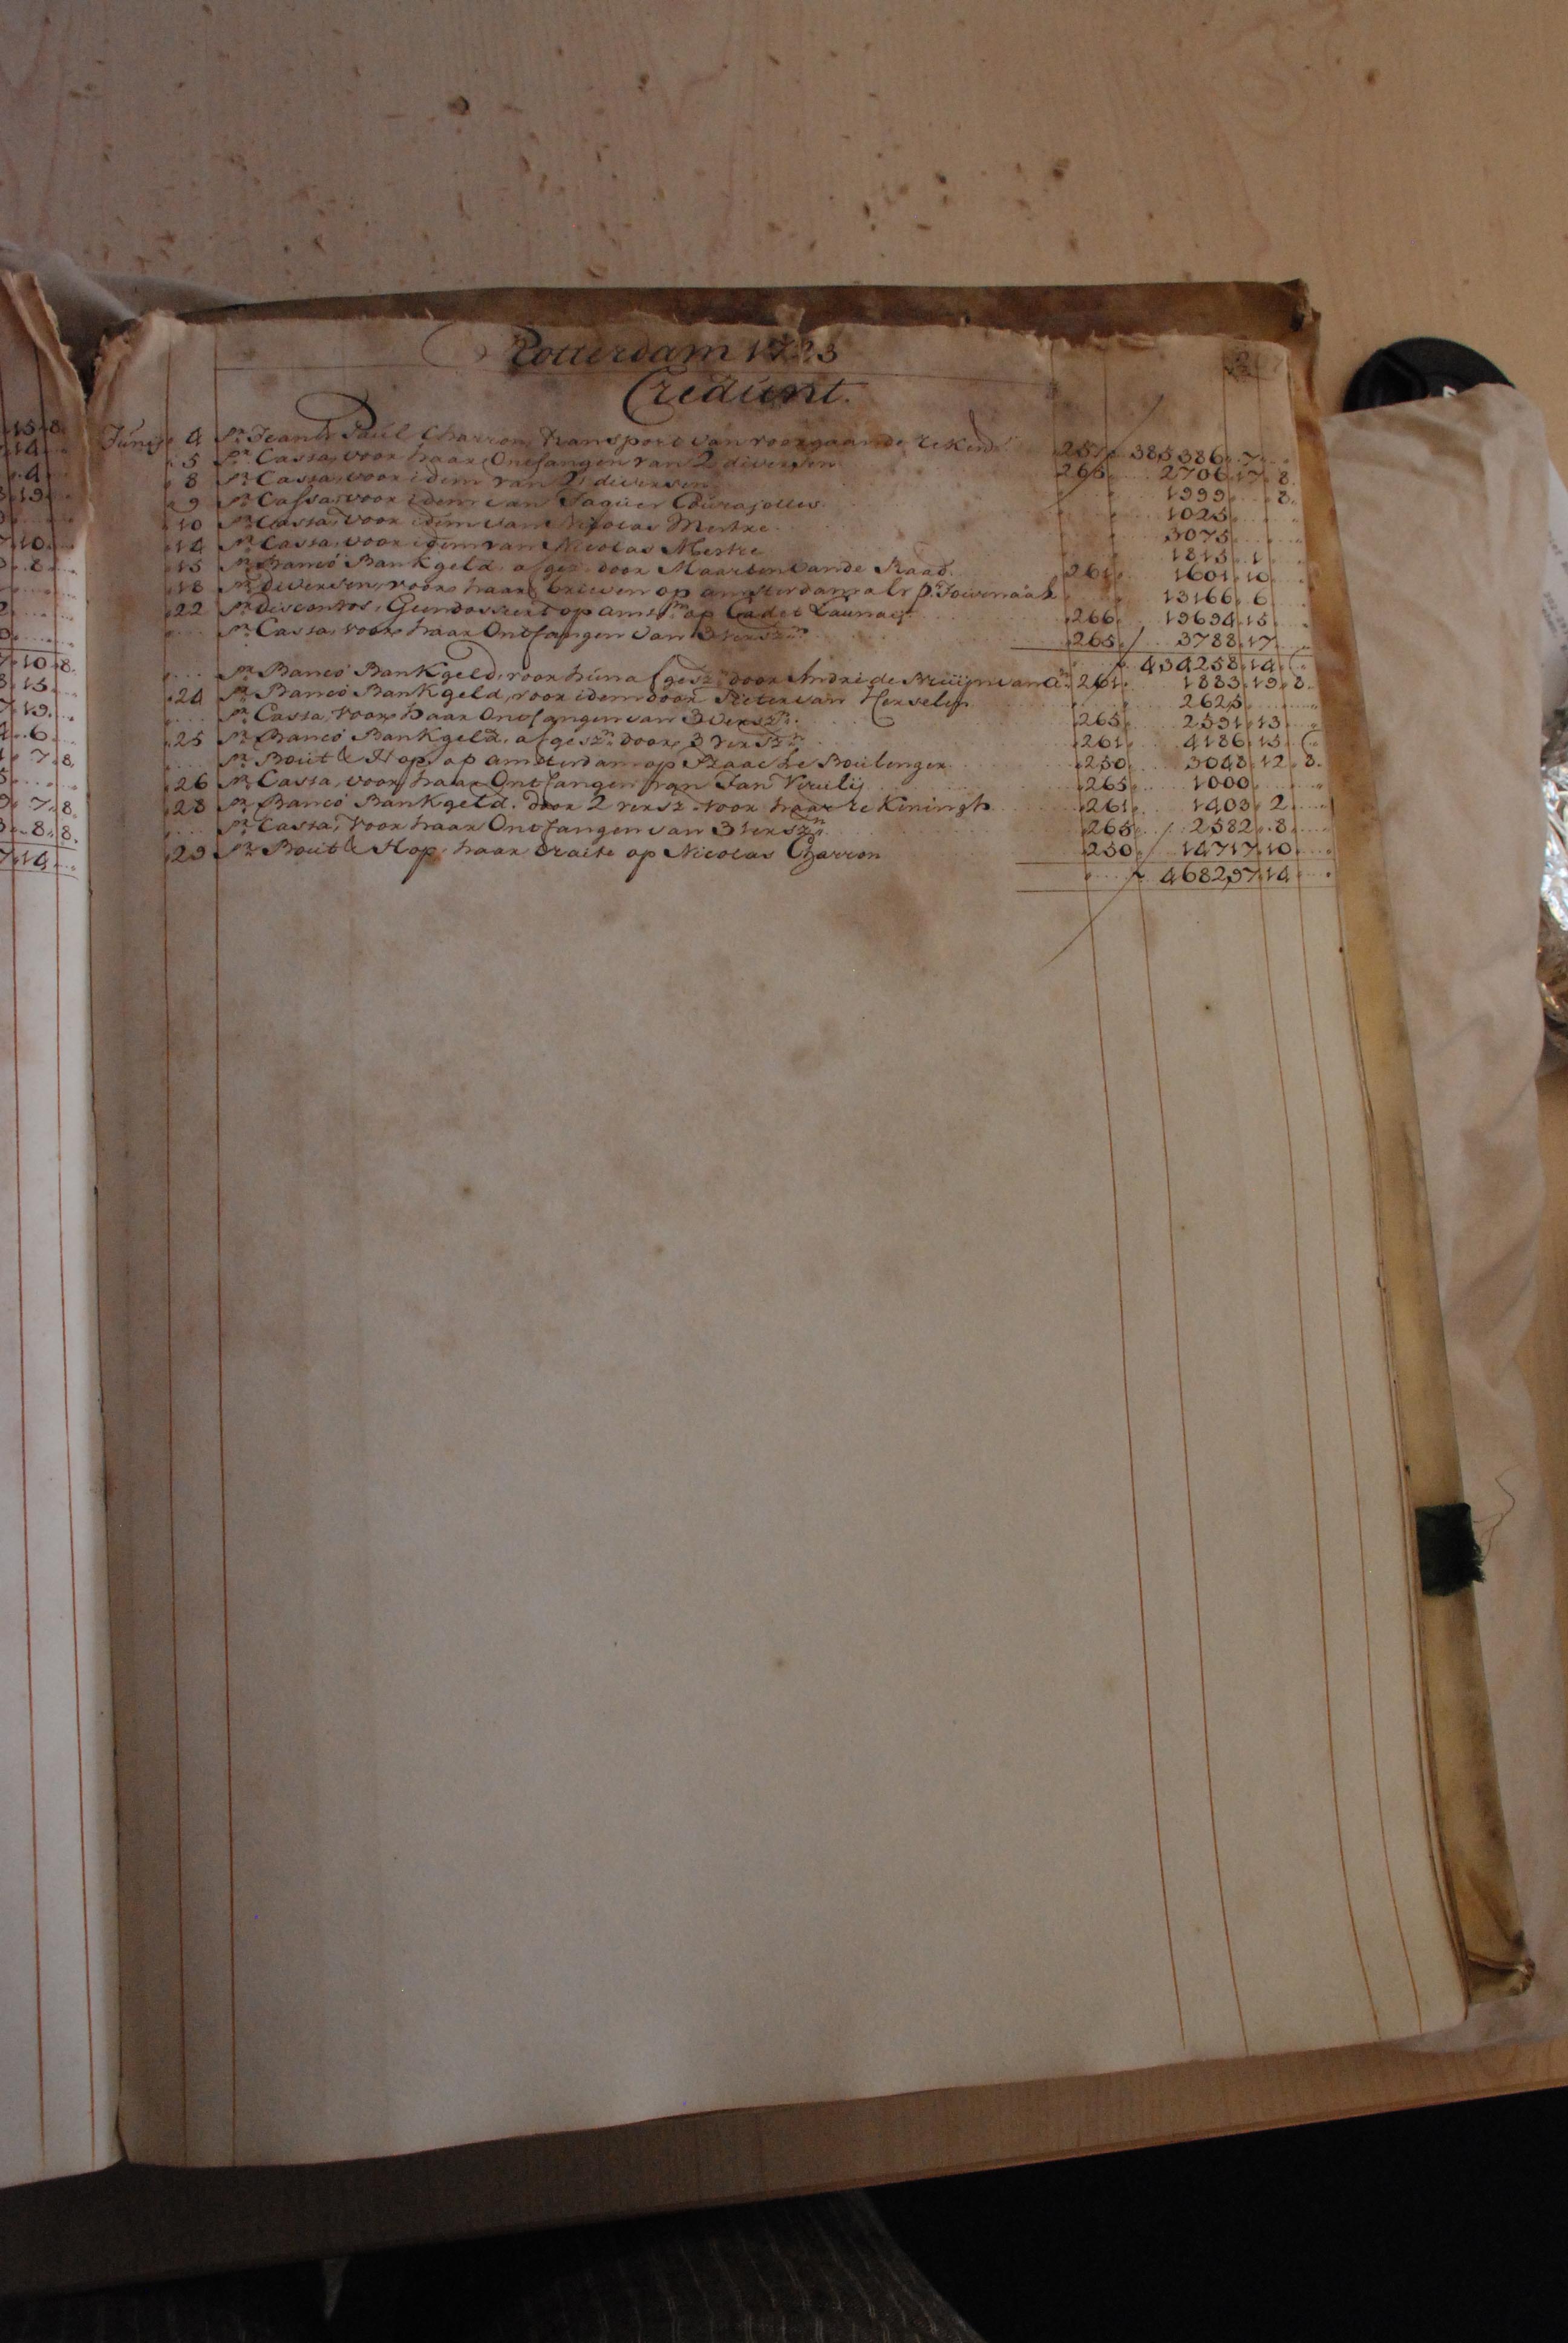 Rotterdam 1723
Credient.
Junij 4 Pr. Jean & Paul Charron, transport van voorgaande rekend 257 385386.7
5 Pr. Cassa, voor haar Ontfangen van 2 diversen 265 2706.17.8
8 Pr. Cassa, voor idem van 2 diversen 1999 .. 8
9 Pr. Cassa, voor idem van Jaques Courajolles 1025
10 Pr. Cassa, voor idem van Nicolas Mertke 3075
14 Pr. Cassa, voor idem van Nicolas Mertke 1815.1
15 Pr. Banco Bankgeld, afges. door Maarten vande Raad 261 1601.10
18 Pr. diversen, voor haar brieven op amsterdam als p. Journaal 13166.6
22 Pr. discontos, Geindosseert op amstm. op Cadet Launaij 266 19694.15
Pr. Cassa, voor haar Ontfangen van 3 versz. 265 3788.17
434258.14
Pr. Banco Bankgeld, voor hún afgesz. door André de 261 1883.19.8
24 Pr. Banco Bankgeld, voor idem door Pieter van 2625
Pr. Cassa, voor haar Ontfangen van 3 versz. 265 2591.13
25 Pr. Banco Bankgeld, afgesz. door 3 versz. 261 4186.15
Pr. Bout & Hop, op amsterdam op Izaac le Boulenger 250 3048.12.8
26 Pr. Cassa, voor haar Ontfangen van Jan Veruly 265 1000
28 Pr. Banco Bankgeld, door 2 versz. voor haar rekeningh 261 1403.2
Pr. Cassa, voor haar Ontfangen van 3 versz. 265 2582.8
29 Pr. Bout & Hop, haar traite op Nicolas Charron 250 14717.10
468297.14